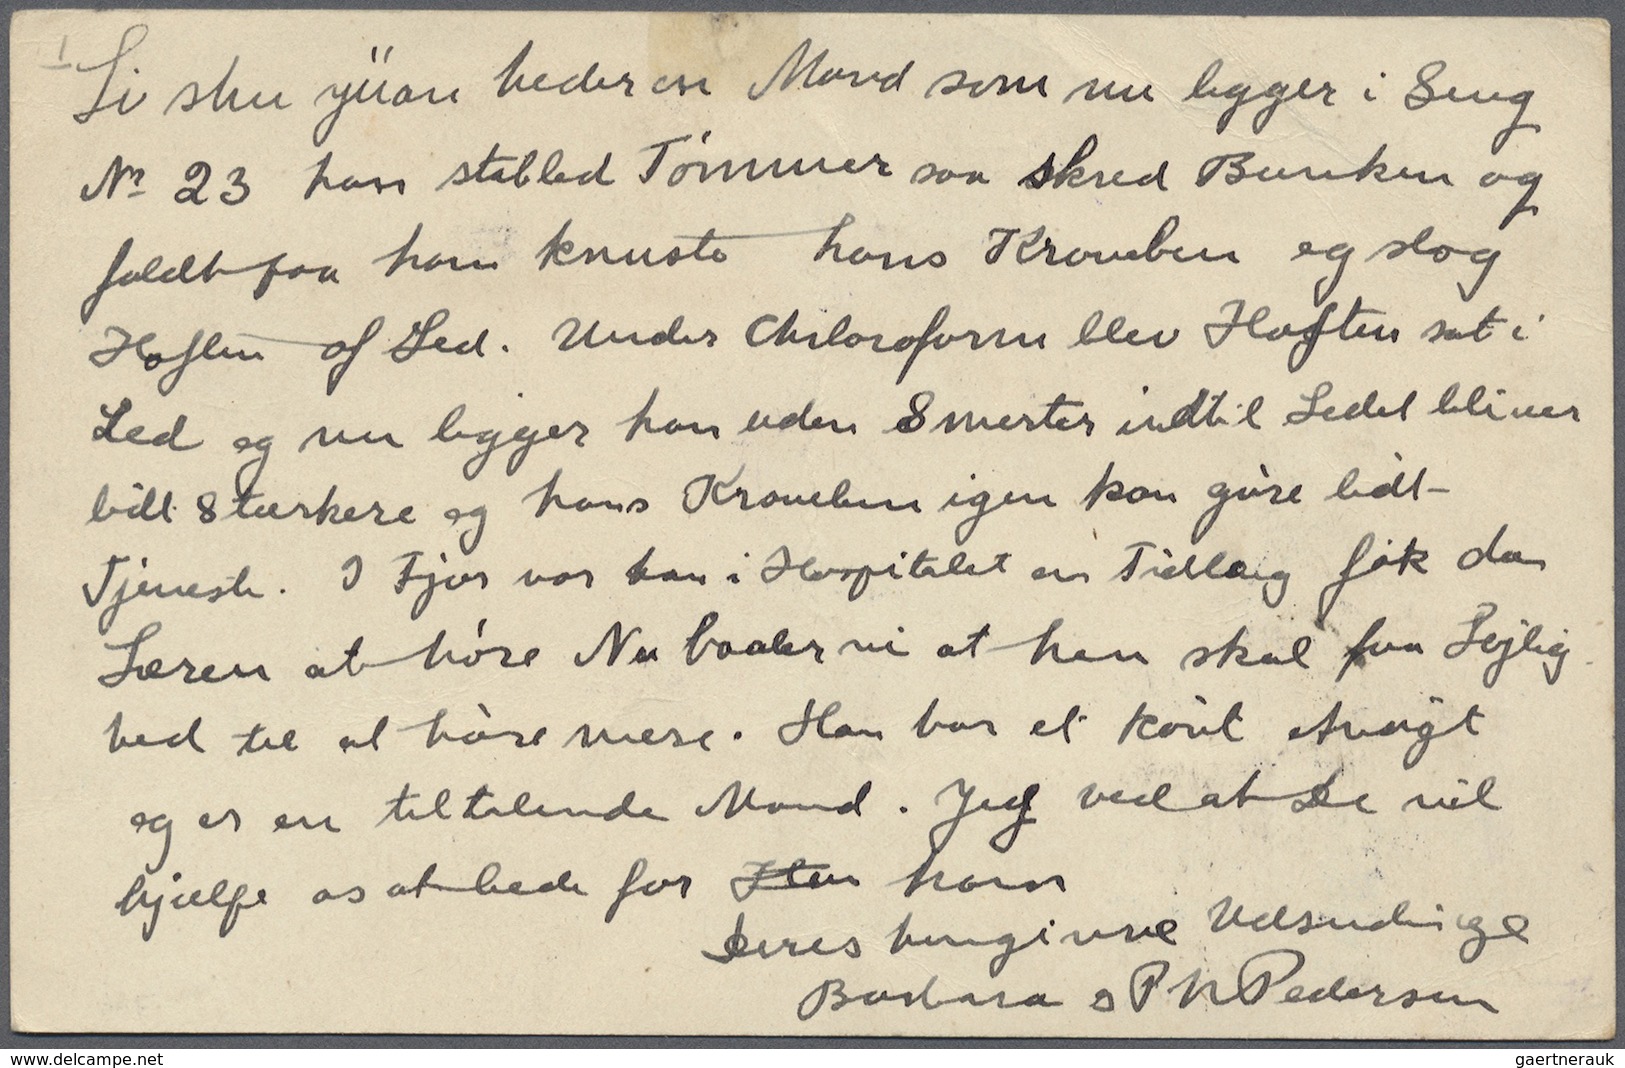 Li shu yüan heder en Mand som nu ligger i Seng
No 23 han stabled Tømmer saa skred Bunken og
faldt paa ham knuste hans Kraveben og slog
Hoften af Led. Under Chloroform blev Hoften sat i
Led og nu ligger han uden Smerter indtil Ledet bliver
lidt stærkere og hans Kraveben igen kan gøre lidt
Tjeneste. I Fjor var han i Hospitalet en Tidlang fik da
Læren at høre Nu haaber vi at han skal faa Lejlig
hed til at høre mere. Han har et kønt Ansigt
og er en tiltalende Mand. Jeg ved at De vil
hjælpe os at bede for ham
Deres hengivne Udsendinge
Barbara & P N Pedersen
delcampe.net
gaertnerauk